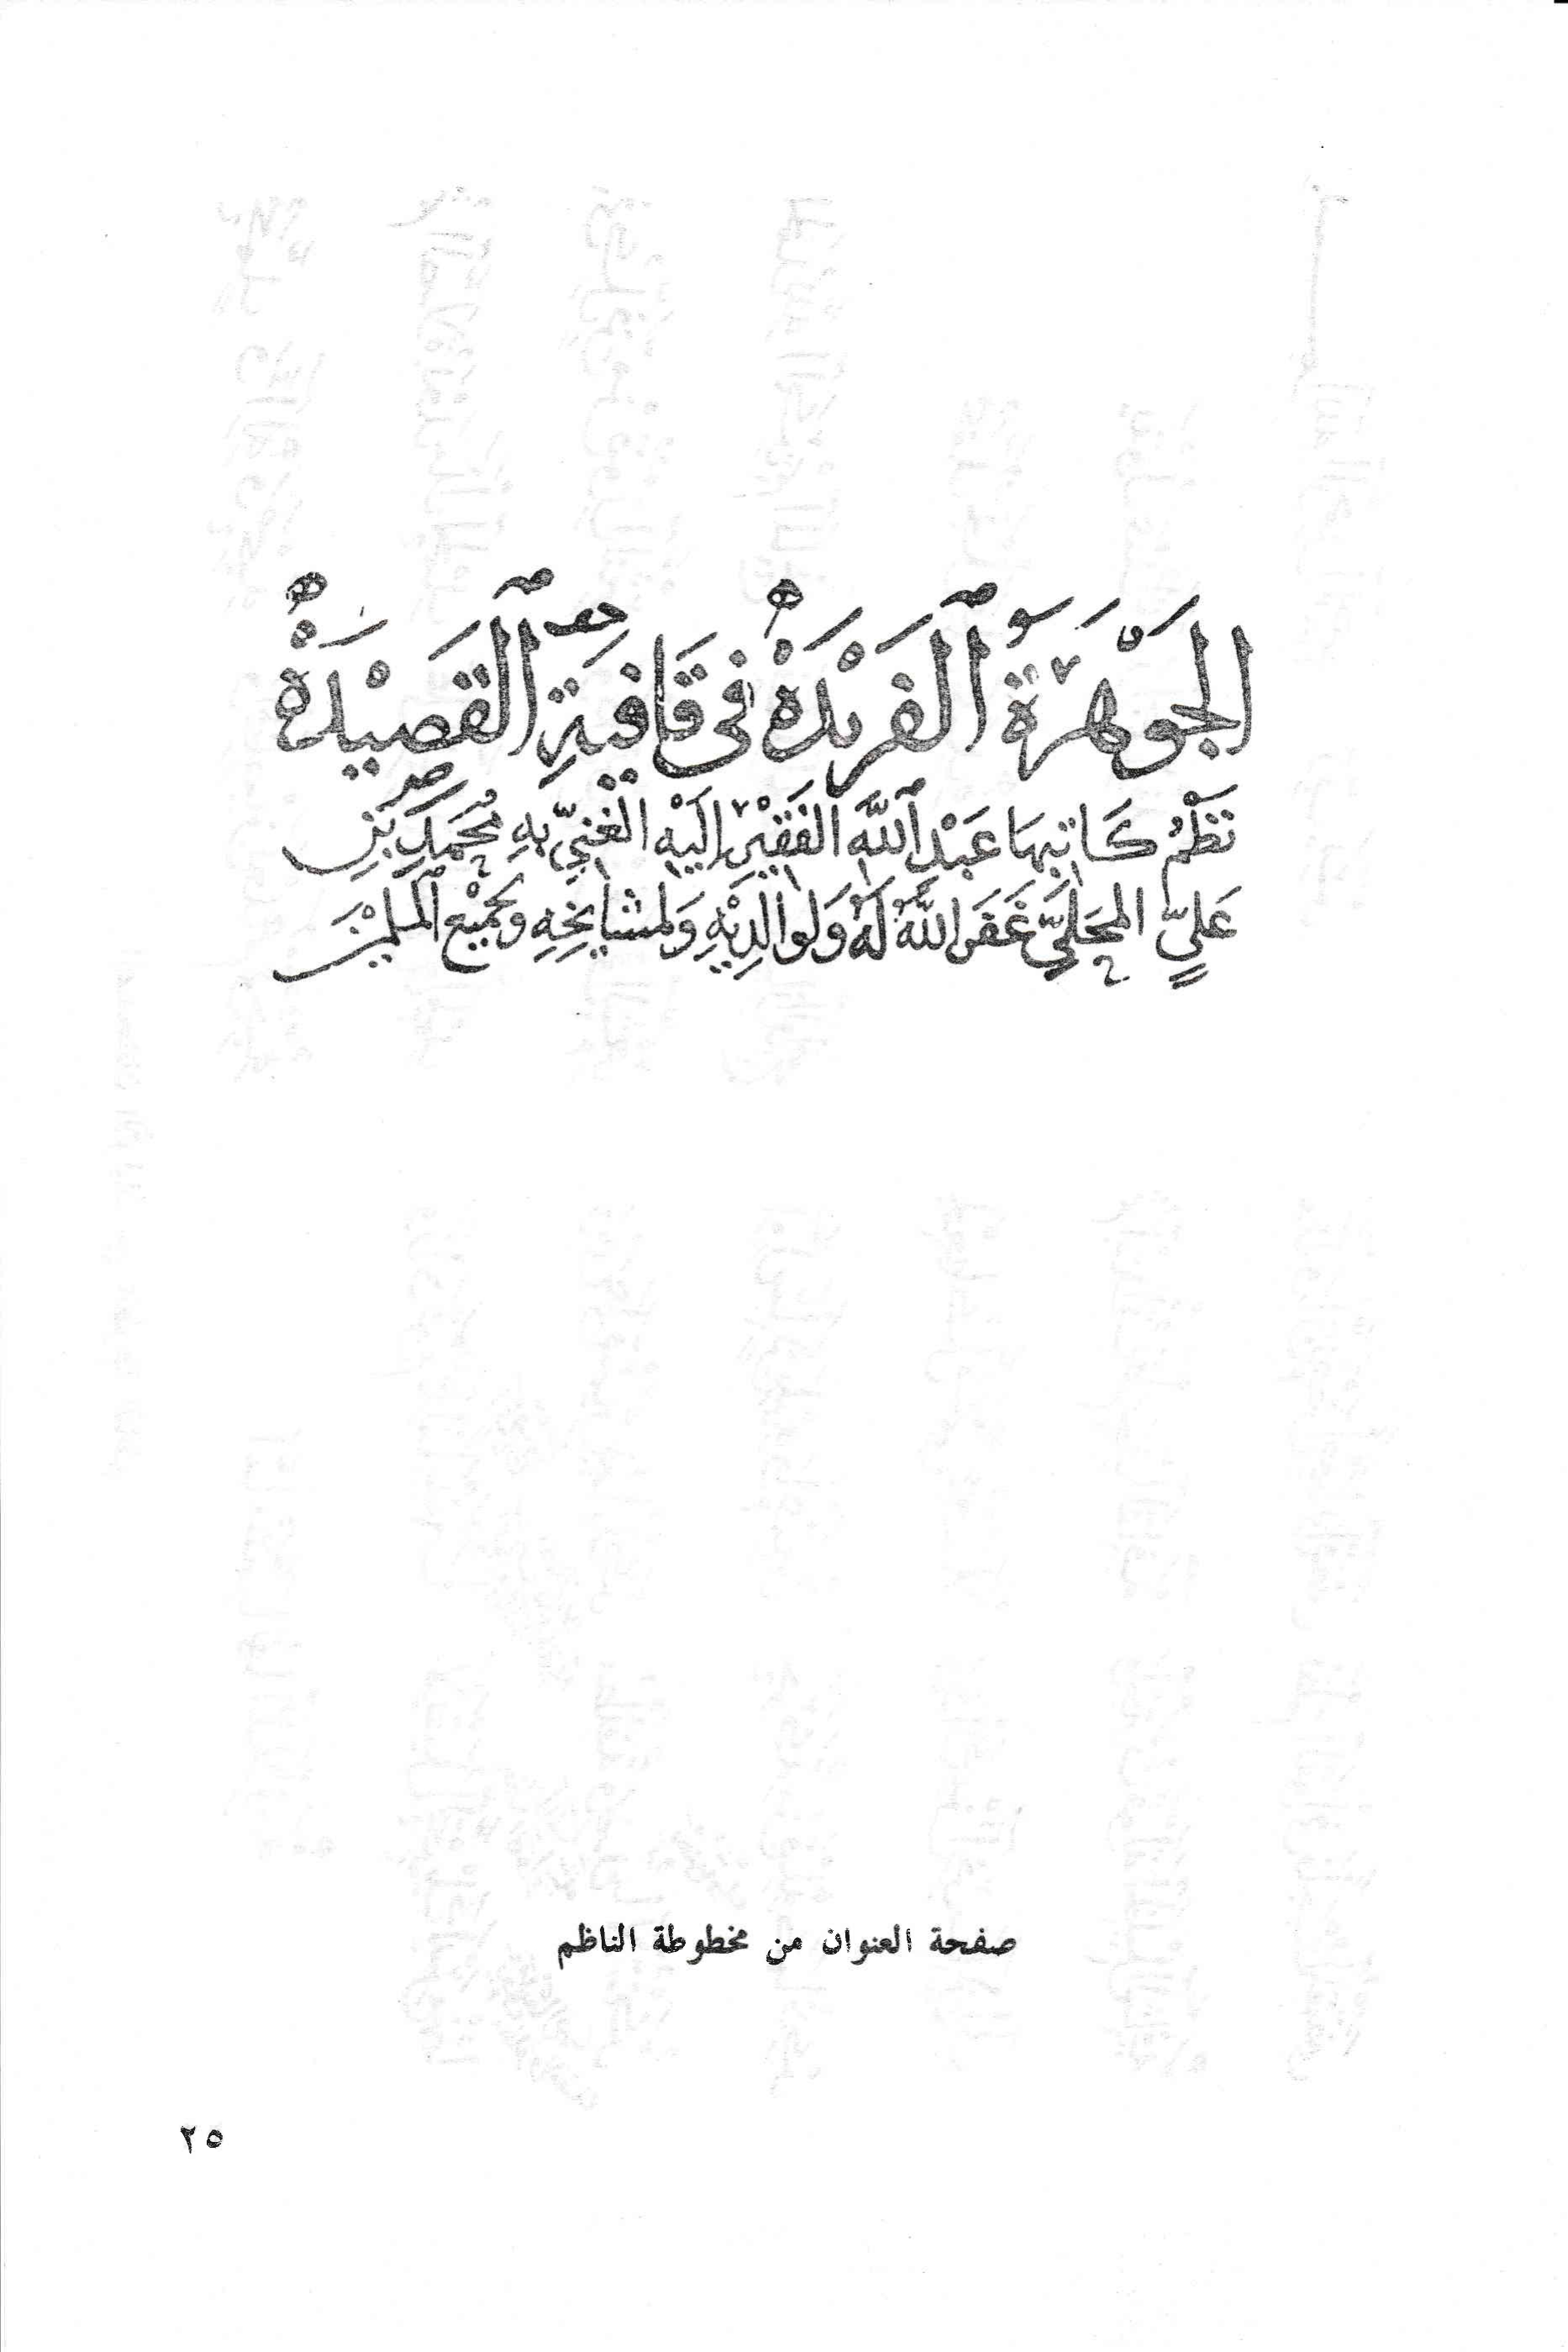 الجَوْهَرَةُ ٱلفَرِيْدَةْ فِى قَافِيَةِ ٱلْقَصِيْدَةْ
نَظْمُ كَاتِبِهَا عَبْدِ ٱللَّهِ الفَقِيْرِ إِلَيْهِ الغَنِيِّ بِهِ مُحَمَّدِ بْنِ
عَلِيٍّ المَحَلِّيِّ غَفَرَ اللَّهُ لَهُ وَلِوَالِدِيْهِ وَلِمَشَايِخِهِ وَلِجَمِيْعِ ٱلمُسْلِمِيْنَ
صفحة العنوان من مخطوطة الناظم
٢٥